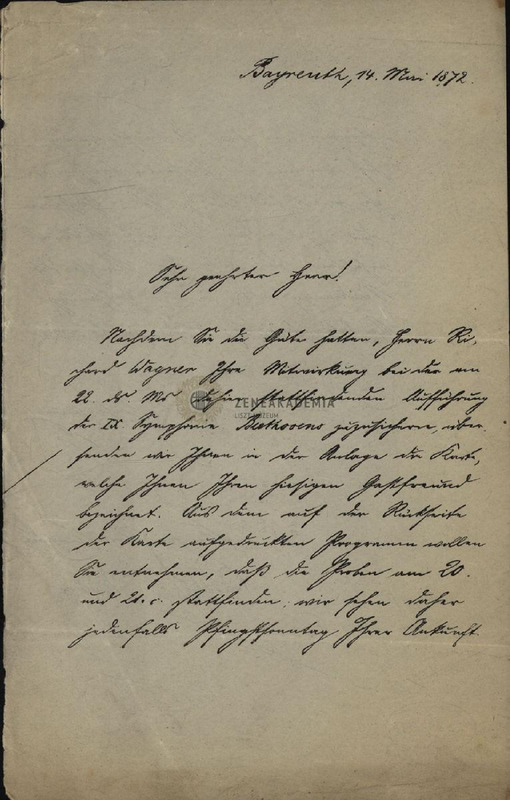 Bayreuth, 14. Mai 1872.
Sehr geehrter Herr!
Nachdem Sie die Güte hatten, Herrn Ri-
chard Wagner Ihre Mitwirkung bei der am
22. ds. Mts. stattfindenden Aufführung
ZENEAKADEMIA
LISZT MÚZEUM
der IX. Symphonie Beethovens zuzusichern, über-
senden wir Ihnen in der Anlage die Karte,
welche Ihnen Ihren hiesigen Gastfreund
bezeichnet. Aus dem auf der Rückseite
der Karte aufgedruckten Programm wollen
Sie entnehmen, daß die Proben am 20.
und 21. c. stattfinden; wir sehen daher
jedenfalls Pfingstsonntag Ihrer Ankunft